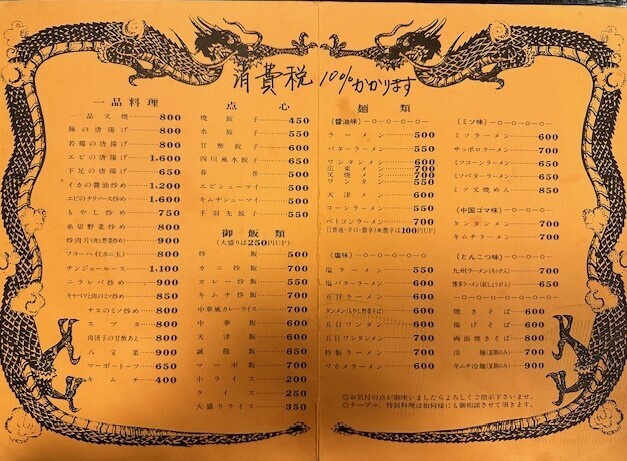 消費税 10%かかります
一品料理
一品叉焼 800
豚の唐揚げ 800
若鶏の唐揚げ 800
エビの唐揚げ 1,600
下足の唐揚げ 650
イカの醬油炒め 1,200
エビのチリソース炒め 1,600
もやし炒め 750
糸切野菜炒め 800
炒肉片(肉と野菜炒め) 900
フヨーハイ(カニ玉) 800
チンジョーロース 1,100
ニラレバ炒め 900
キャベツと肉のミソ炒め 850
ナスのミソ炒め 800
スブタ 800
肉団子の甘酢あえ 800
八宝菜 900
マーボートーフ 650
キムチ 400
点心
焼餃子 450
水餃子 550
甘酢餃子 600
四川風水餃子 650
春巻 500
エビシューマイ 500
キムチシューマイ 500
手羽先餃子 550
御飯類
(大盛りは250円UP)
炒飯 500
カニ炒飯 700
カレー炒飯 550
キムチ炒飯 700
中華風カレーライス 700
中華飯 600
天津飯 600
誠龍飯 650
マーボ飯 700
小ライス 200
ライス 250
大盛りライス 350
麺類
(醬油味)
ラーメン 500
バターラーメン 550
ワンタンメン 600
広東メン 700
叉焼メン 700
ワンタン 550
天津メン 600
コーンラーメン 550
ベトコンラーメン 700
(普通・辛口・激辛)※激辛は100円UP
(塩味)
塩ラーメン 550
塩バターラーメン 600
五目ラーメン 600
タンメン(もやし野菜そば) 600
五目ワンタン 600
五目ワンタンメン 700
特製ラーメン 700
ワカメラーメン 600
(ミソ味)
ミソラーメン 600
サッポロラーメン 700
ミソコーンラーメン 650
ミソバターラーメン 650
ミソ叉焼めん 850
(中国ゴマ味)
タンタンメン 700
キムチラーメン 700
(とんこつ味)
九州ラーメン(キムチ入) 700
博多ラーメン(紅しょうが入) 650
焼きそば 600
揚げそば 600
両面焼きそば 800
冷麺(夏期のみ) 700
キムチ冷麺(夏期のみ) 900
○お気付の点が御座いましたらよろしくご指示下さいませ。
○テーブル、特別料理は如何様にも御相談させて頂きます。